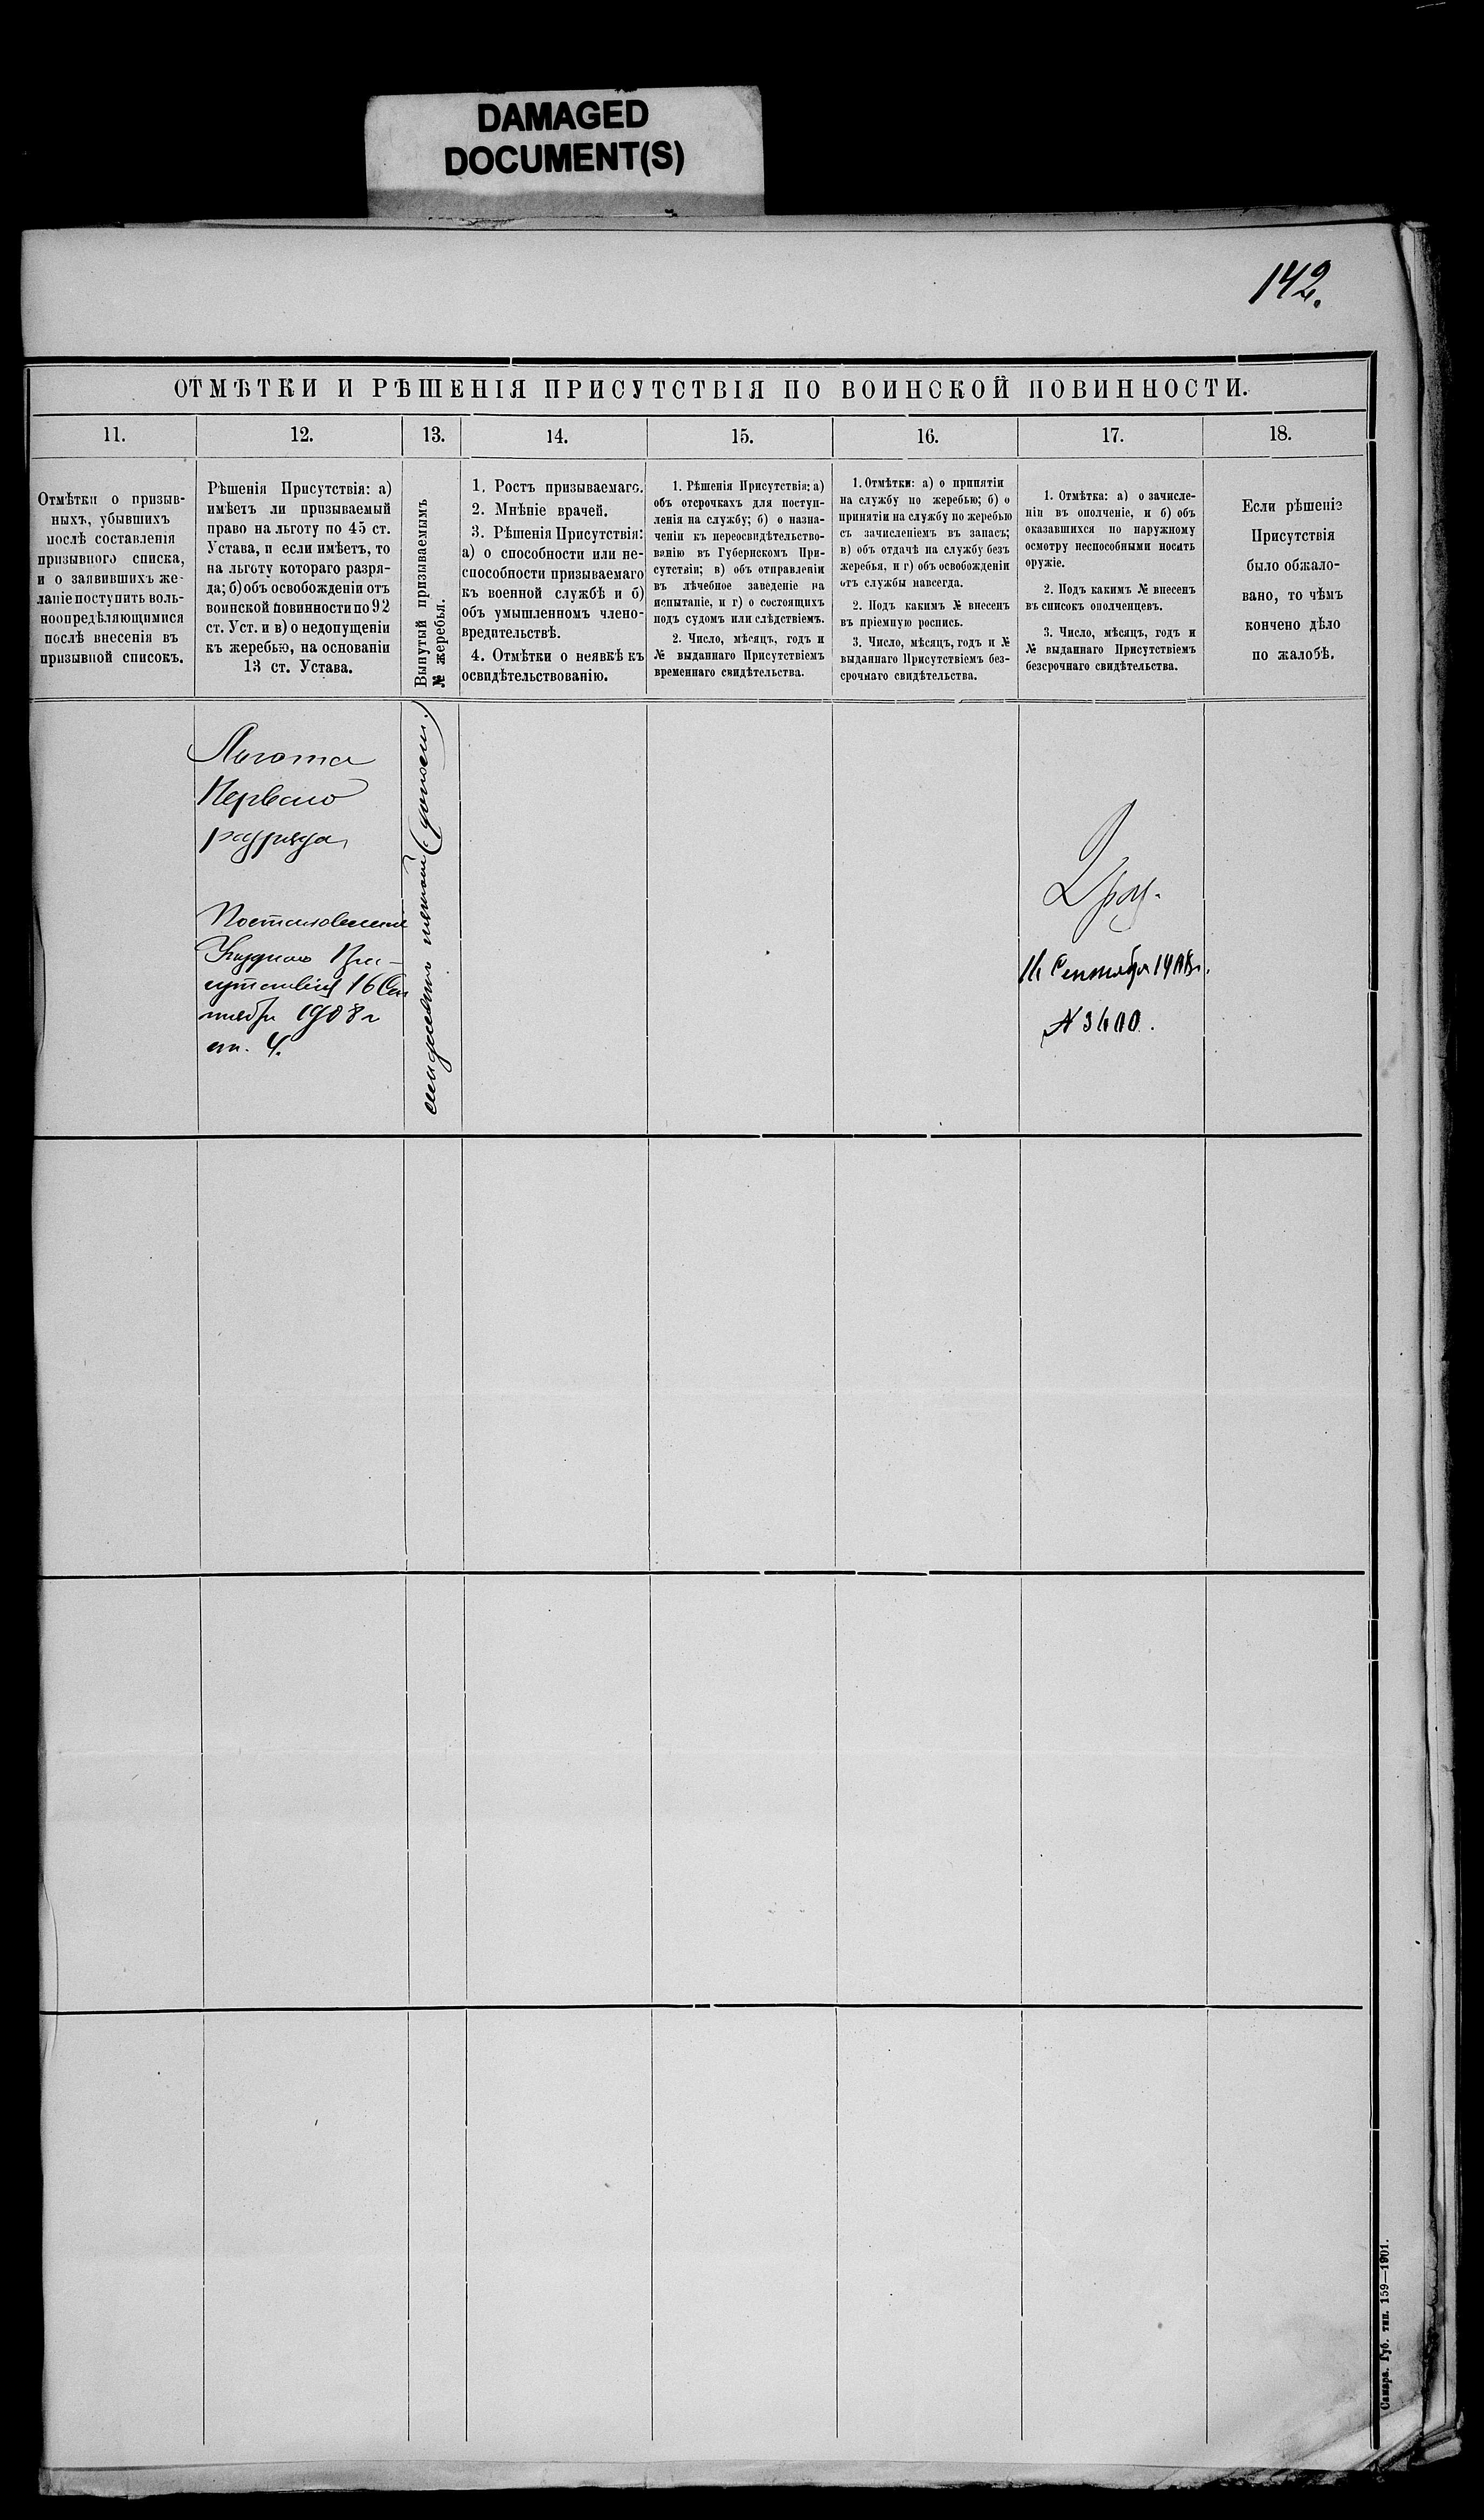 DAMAGED
DOCUMENT(S)
142.
ОТМѢТКИ И РѢШЕНІЯ ПРИСУТСТВІЯ ПО ВОИНСКОЙ ПОВИННОСТИ.
11.
12.
13.
14.
15.
16.
17.
18.
Отмѣтки о призыв-
ныхъ, убывшихъ
послѣ составленія
призывного списка,
и о заявившихъ же-
ланіе поступить воль-
ноопредѣляющимися
послѣ внесенія въ
призывной списокъ.
Рѣшенія Присутствія: а)
имѣетъ ли призываемый
право на льготу по 45 ст.
Устава, и если имѣетъ, то
на льготу котораго разря-
да; б) объ освобожденіи отъ
воинской повинности по 92
ст. Уст. и в) о недопущеніи
къ жеребью, на основаніи
13 ст. Устава.
Вынутый призываемымъ
№ жеребья.
1. Ростъ призываемаго.
2. Мнѣніе врачей.
3. Рѣшенія Присутствія:
а) о способности или не-
способности призываемаго
къ военной службѣ и б)
объ умышленномъ члено-
вредительствѣ.
4. Отмѣтки о неявкѣ къ
освидѣтельствованію.
1. Рѣшенія Присутствія: а)
объ отсрочкахъ для поступ-
ленія на службу; б) о назна-
ченіи къ переосвидѣтельство-
ванію въ Губернскомъ При-
сутствіи; в) объ отправленіи
въ лѣчебное заведеніе на
испытаніе, и г) о состоящихъ
подъ судомъ или слѣдствіемъ.
2. Число, мѣсяцъ, годъ и
№ выданнаго Присутствіемъ
временнаго свидѣтельства.
1. Отмѣтки: а) о принятіи
на службу по жеребью; б) о
принятіи на службу по жеребью
съ зачисленіемъ въ запасъ;
в) объ отдачѣ на службу безъ
жеребья, и г) объ освобожденіи
отъ службы навсегда.
2. Подъ какимъ № внесенъ
въ пріемную роспись.
3. Число, мѣсяцъ, годъ и №
выданнаго Присутствіемъ без-
срочнаго свидѣтельства.
1. Отмѣтка: а) о зачисле-
ніи въ ополченіе, и б) объ
оказавшихся по наружному
осмотру неспособными носить
оружіе.
2. Подъ какимъ № внесенъ
въ списокъ ополченцевъ.
3. Число, мѣсяцъ, годъ и
№ выданнаго Присутствіемъ
безсрочнаго свидѣтельства.
Если рѣшеніе
Присутствія
было обжало-
вано, то чѣмъ
кончено дѣло
по жалобѣ.
Льгота
Перваго
разряда
Постановленіе
Уѣзднаго При-
сутствія 16 Сен
тября 1908 г
ст. 4.
2 раз.
16 Сентября 1908 г.
№ 3600.
Самара. Губ. тип. 159—1901.